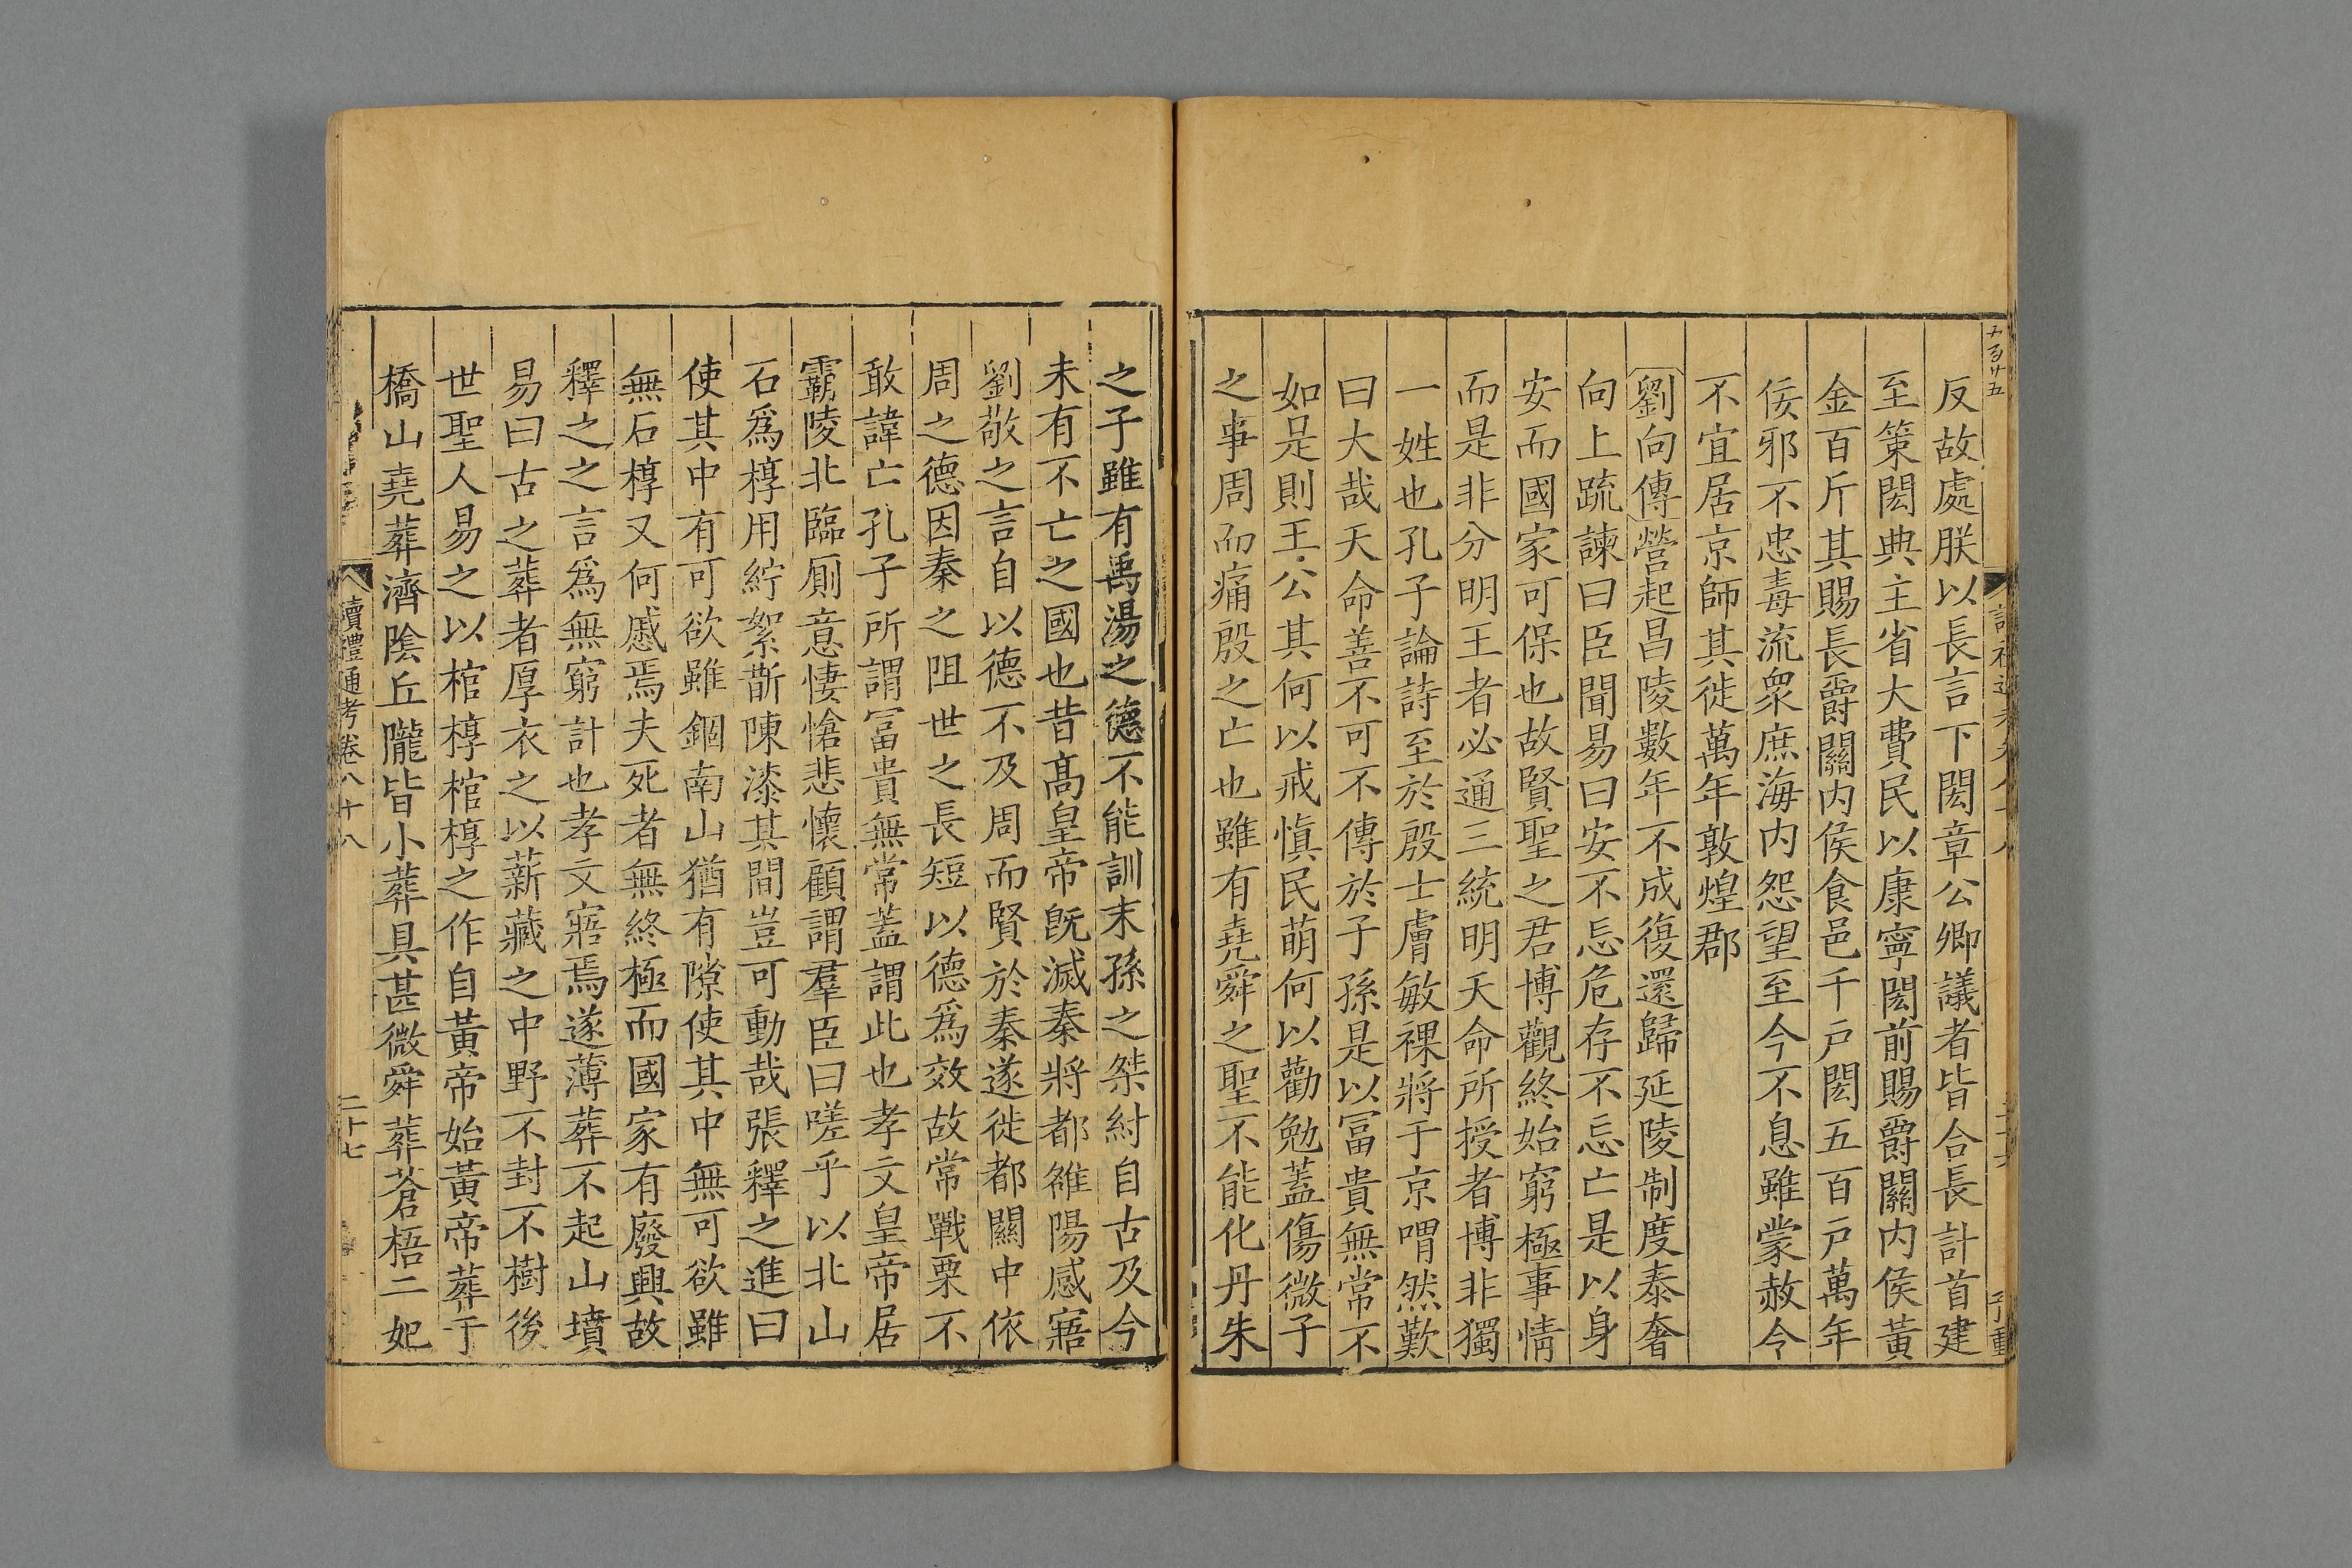 反故處朕以長言下閎章公卿議者皆合長計首建
至策閎典主省大費民以康寧閎前賜爵關内侯黃
金百斤其賜長爵關内侯食邑千戸閎五百戸萬年
佞邪不忠毒流衆庶海内怨望至今不息雖蒙赦令
不宜居京師其徙萬年敦煌郡
劉向傳營起昌陵數年不成復還歸延陵制度泰奢
向上疏諫曰臣聞易曰安不忘危存不忘亡是以身
安而國家可保也故賢聖之君博觀終始窮極事情
而是非分明王者必通三統明天命所授者博非獨
一姓也孔子論詩至於殷士膚敏祼將于京喟然歎
曰大哉天命善不可不傳於子孫是以冨貴無常不
如是則王公其何以戒愼民萌何以勸勉蓋傷微子
之事周而痛殷之亡也雖有堯舜之聖不能化丹朱
之子雖有禹湯之德不能訓末孫之桀紂自古及今
未有不亡之國也昔高皇帝旣滅秦將都雒陽感寤
劉敬之言自以德不及周而賢於秦遂徙都關中依
周之德因秦之阻世之長短以德爲效故常戰栗不
敢諱亡孔子所謂冨貴無常蓋謂此也孝文皇帝居
霸陵北臨厠意悽愴悲懷顧謂羣臣曰嗟乎以北山
石爲槨用紵絮斮陳漆其間豈可動哉張釋之進曰
使其中有可欲雖錮南山猶有隙使其中無可欲雖
無石槨又何慼焉夫死者無終極而國家有廢興故
釋之之言爲無窮計也孝文寤焉遂薄葬不起山墳
易曰古之葬者厚衣之以薪藏之中野不封不樹後
世聖人易之以棺槨棺槨之作自黃帝始黃帝葬于
橋山堯葬濟隂丘隴皆小葬具甚微舜葬蒼梧二妃
讀禮通考卷八十八
二十七